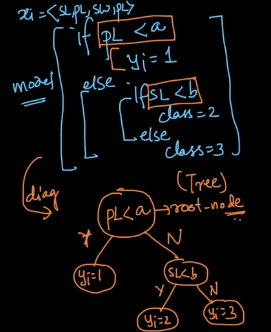 xi=<SL,PL,SW,PL>
if PL<a
yi=1
model
else
if SL<b
class=2
else
class=3
diag
(Tree)
PL<a → root-node
Y N
yi=1 SL<b
Y N
yi=2 yi=3